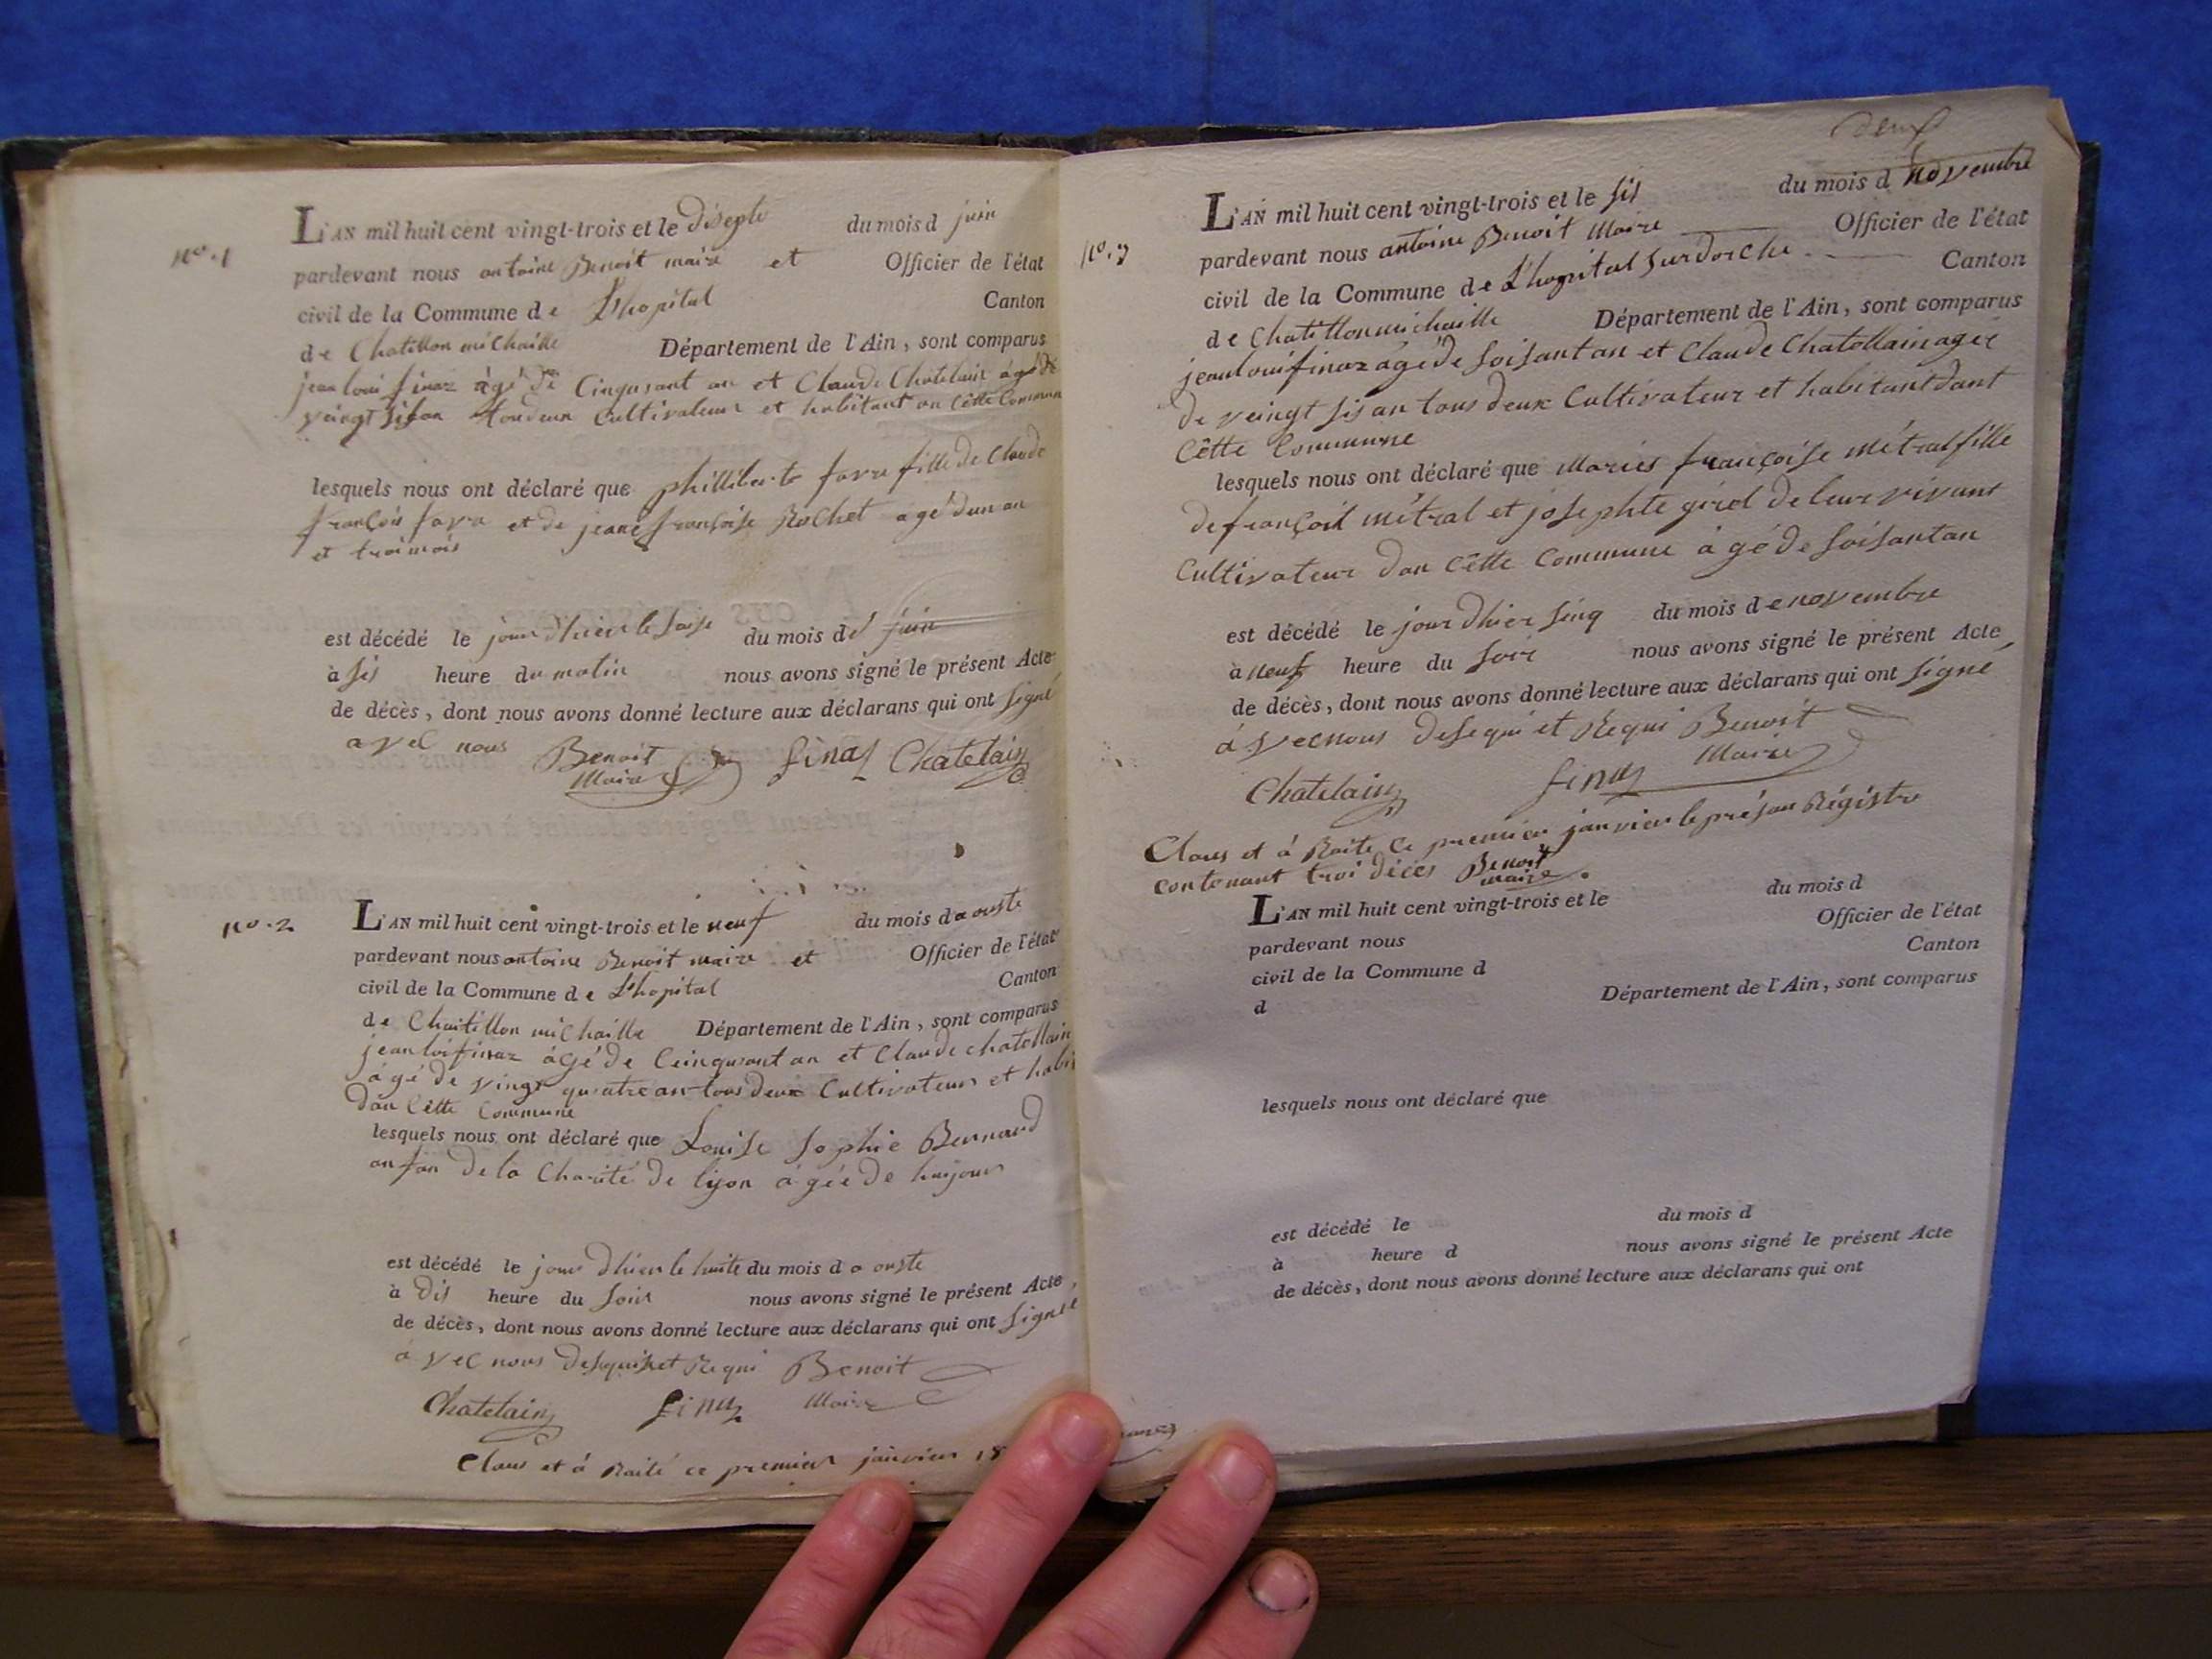 No. 1
L'AN mil huit cent vingt-trois et le disepte du mois d juin
pardevant nous antoine Benoit maire et Officier de l'état
civil de la Commune de L'hopital Canton
de Chatillon michaille Département de l'Ain, sont comparus
jean loui finaz àgé de Cinqusant an et Claude Chatelain àgé de
veingt sis an toudeux Cultivateur et habitant an Cètte Commune
lesquels nous ont déclaré que philliberte favre fille de Claude
françois favre et de jeane françoise Rochet agé dun an
et troi mois
est décédé le jour d'hier le saise du mois de juin
à sis heure du matin nous avons signé le présent Acte
de décès, dont nous avons donné lecture aux déclarans qui ont signé
avec nous Benoit Maire finaz Chatelain
No. 2
L'AN mil huit cent vingt-trois et le neuf du mois d a ouste
pardevant nous antoine Benoit maire et Officier de l'état
civil de la Commune de L'hopital Canton
de Chaitillon michaille Département de l'Ain, sont comparus
jean loi finaz àgé de Ceinqusant an et Claude chatellain
àgé de vingt quatre an tous deux Cultivateur et habi
dan Cètte Commune
lesquels nous ont déclaré que Louise Sophie Bernaud
anfan de la Charité de lyon àgée de huijour
est décédé le jour d'hier le huite du mois d a ouste
à dis heure du soir nous avons signé le présent Acte,
de décès, dont nous avons donné lecture aux déclarans qui ont signé
avec nous Requi Benoit
Chatelain finaz Maire
Claus et à Raité ce premier janvier 18
deux
No. 3
L'AN mil huit cent vingt-trois et le sis du mois d novembre
pardevant nous antoine Benoit Maire Officier de l'état
civil de la Commune de L'hopital surdorche Canton
de Chatillonmichaille Département de l'Ain, sont comparus
jeanloui finaz àgé de soisantan et Claude Chatellain ageé
de veingt sis an tous deux Cultivateur et habitant dant
Cètte Commune
lesquels nous ont déclaré que Maries françoise métral fille
de françoit métral et josephte girel de leur vivant
Cultivateur dan Cètte Commune àgé de soisantan
est décédé le jour dhier sinq du mois de novembre
à neuf heure du soir nous avons signé le présent Acte,
de décès, dont nous avons donné lecture aux déclarans qui ont signé
àvec nous desequi et Requi Benoit
Chatelain finaz Maire
Claus et à Raite Ce premier janvier le présan Régistre
contenant troi déces Benoit
maire
L'AN mil huit cent vingt-trois et le du mois d
pardevant nous Officier de l'état
civil de la Commune d Canton
d Département de l'Ain, sont comparus
lesquels nous ont déclaré que
est décédé le du mois d
à heure d nous avons signé le présent Acte
de décès, dont nous avons donné lecture aux déclarans qui ont